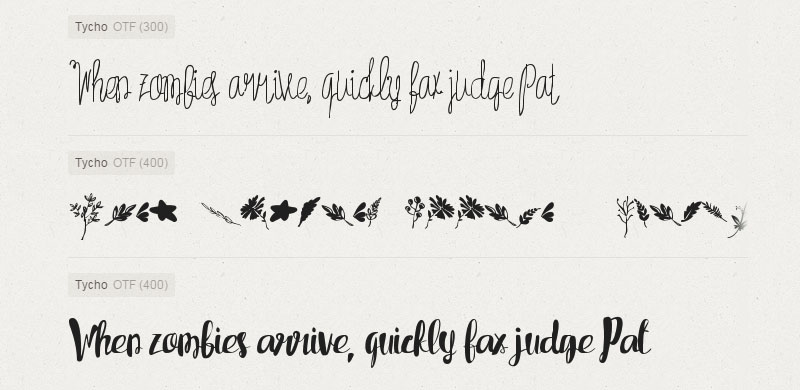 Tycho OTF (300)
When zombies arrive, quickly fax judge Pat
Tycho OTF (400)
Tycho OTF (400)
When zombies arrive, quickly fax judge Pat